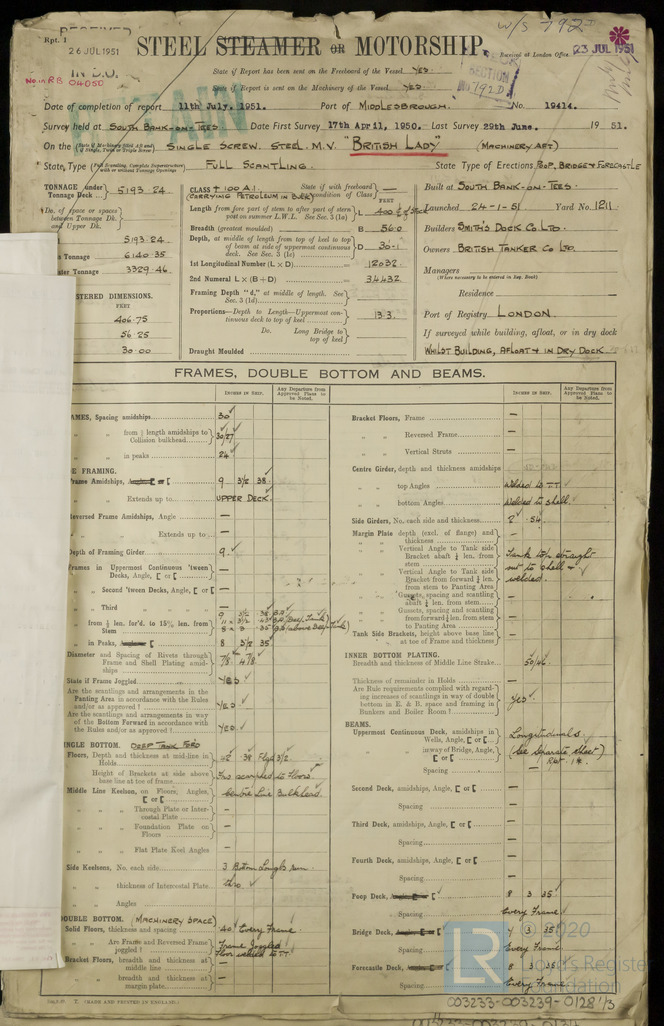 Rpt. 1
RECEIVED
26 JUL 1951
IN D.O.
No. in R.B. 04050
STEEL STEAMER OR MOTORSHIP
W/S 792
Received at London Office 23 JUL 1951
State if Report has been sent on the Freeboard of the Vessel YES.
State if Report is sent on the Machinery of the Vessel YES.
SECTION
Date of completion of report 11th July, 1951. Port of MIDDLESBROUGH. No. 19414.
Survey held at SOUTH BANK-ON-TEES Date First Survey 17th April, 1950. Last Survey 29th June. 1951.
On the (State if Machinery fitted Aft and if Single, Twin or Triple Screw) SINGLE SCREW. STEEL. M.V. "BRITISH LADY" (MACHINERY AFT)
State, Type (Full Scantling, Complete Superstructure with or without Tonnage Openings) FULL SCANTLING. State Type of Erections, POOP, BRIDGE & FORECASTLE
TONNAGE under Tonnage Deck 5193.24
Do. of space or spaces between Tonnage Dk. and Upper Dk. —
5193.24
Tonnage 6140.35
Tonnage 3329.46
DIMENSIONS.
FEET
406.75
56.25
30.00
CLASS +100 A.1. State if with freeboard condition of Class —
CARRYING PETROLEUM IN BULK
Length from fore part of stem to after part of stern post on summer L.W.L. See Sec. 3 (1a) L 400
Breadth (greatest moulded) B 56.0
Depth, at middle of length from top of keel to top of beam at side of uppermost continuous deck. See Sec. 3 (1c) D 30.1
1st Longitudinal Number (L × D) 12032
2nd Numeral L × (B+D) 34432
Framing Depth "d," at middle of length. See Sec. 3 (1d) —
Proportions—Depth to Length—Uppermost continuous deck to top of keel 13.3
Do. Long Bridge to top of keel —
Draught Moulded
Built at SOUTH BANK-ON-TEES.
Launched 24-1-51 Yard No. 1211
Builders SMITH'S DOCK CO. LTD.
Owners BRITISH TANKER CO LTD.
Managers
(Where necessary to be entered in Reg. Book)
Residence
Port of Registry LONDON.
If surveyed while building, afloat, or in dry dock
WHILST BUILDING, AFLOAT & IN DRY DOCK.
FRAMES, DOUBLE BOTTOM AND BEAMS.
INCHES IN SHIP.
Any Departure from Approved Plans to be Noted.
FRAMES, Spacing amidships 30
" " from ½ length amidships to Collision bulkhead 30/27
" " in peaks 24
FRAMING.
Frame Amidships, Angle 9 3½ 38
" " Extends up to UPPER DECK.
Reversed Frame Amidships, Angle —
" " Extends up to —
Depth of Framing Girder 9
Frames in Uppermost Continuous 'tween Decks, Angle, [ or [ —
" Second 'tween Decks, Angle, [ or [ —
" Third " " —
" from ½ len. for'd. to 15% len. from Stem
" in Peaks 8 3½ 35
Diameter and Spacing of Rivets through Frame and Shell Plating amidships 7/8 4 7/8
State if Frame Joggled YES
Are the scantlings and arrangements in the Panting Area in accordance with the Rules and/or as approved? YES
Are the scantlings and arrangements in way of the Bottom Forward in accordance with the Rules and/or as approved? YES
SINGLE BOTTOM. DEEP TANK FORD
Floors, Depth and thickness at mid-line in Holds 42 38 Flgd 3½
Height of Brackets at side above base line at toe of frame
Middle Line Keelson, on Floors, Angles, [ or [ Centre Line Bulkhead.
" " Through Plate or Intercostal Plate —
" " Foundation Plate on Floors —
" " Flat Plate Keel Angles —
Side Keelsons, No. each side 3 Bottom Longls run
" " thickness of Intercostal Plate thro
" " Angles —
DOUBLE BOTTOM. (MACHINERY SPACE)
Solid Floors, thickness and spacing 40 Every Frame
" " Are Frame and Reversed Frame joggled? Frame Joggled Floor welded to T.T.
Bracket Floors, breadth and thickness at middle line —
" " breadth and thickness at margin plate —
(MADE AND PRINTED IN ENGLAND.)
INCHES IN SHIP.
Any Departure from Approved Plans to be Noted.
Bracket Floors, Frame —
" " Reversed Frame —
" " Vertical Struts —
Centre Girder, depth and thickness amidships
" " top Angles Welded to T.T.
" " bottom Angles Welded to shell.
Side Girders, No. each side and thickness 2 .54
Margin Plate depth (excl. of flange) and thickness —
" " Vertical Angle to Tank side Bracket abaft ¼ len. from stem Tank top straight out to shell & welded.
" " Vertical Angle to Tank side Bracket from forward ¼ len. from stem to Panting Area
" " Gussets, spacing and scantling abaft ¼ len. from stem
" " Gussets, spacing and scantling from forward ¼ len. from stem to Panting Area
Tank Side Brackets, height above base line at toe of Frame and thickness —
INNER BOTTOM PLATING.
Breadth and thickness of Middle Line Strake 50/46
Thickness of remainder in Holds —
Are Rule requirements complied with regarding increases of scantlings in way of double bottom in E. & B. space and framing in Bunkers and Boiler Room? Yes
BEAMS.
Uppermost Continuous Deck, amidships in Wells, Angle, [ or [ Longitudinals
" " in way of Bridge, Angle, [ or [ (See separate sheet) Rpt. 1*.
Spacing —
Second Deck, amidships, Angle, [ or [ —
Spacing —
Third Deck, amidships, Angle, [ or [ —
Spacing —
Fourth Deck, amidships, Angle, [ or [ —
Spacing —
Poop Deck, 8 3 35
Spacing Every Frame
Bridge Deck, 3 35
Spacing Every Frame
Forecastle Deck, 8 3 35
Spacing Every Frame
LR
© 2020
Lloyd's Register
Foundation
003233-003239-0128 1/3